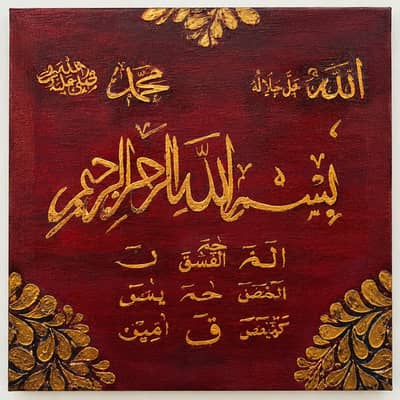 الله جل جلاله محمد صلى الله عليه وسلم
بسم الله الرحمن الرحيم
الم حم ن
المص حم
كهيعص ق امين